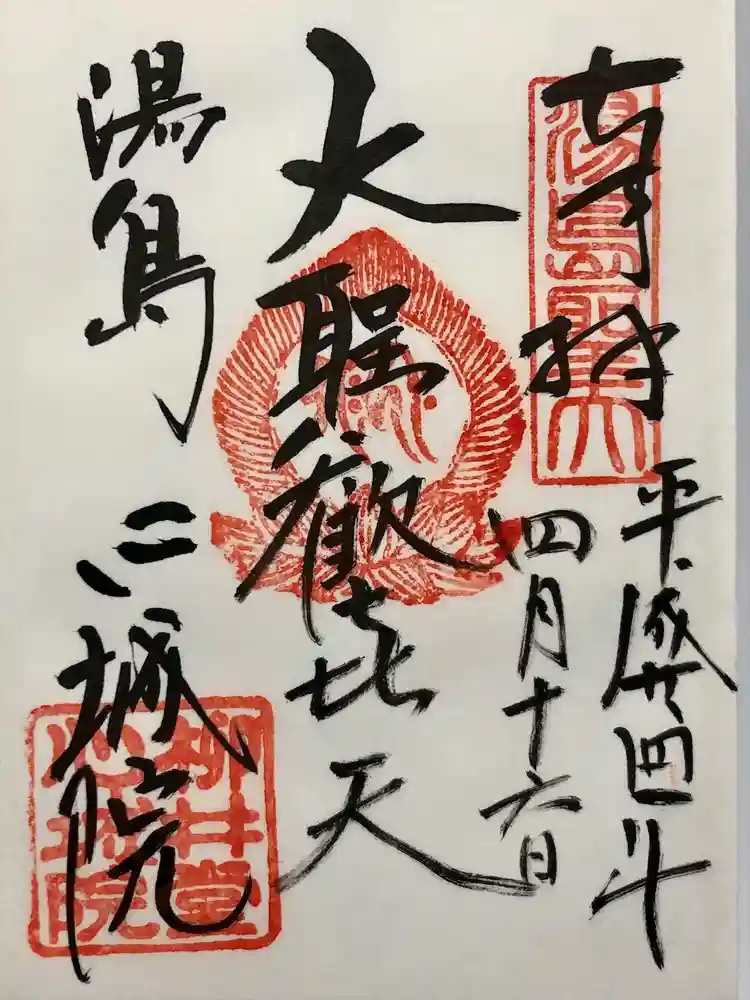 奉拝
湯島聖天
平成廿四年
四月十六日
大聖歓㐂天
湯島 心城院
柳井堂
心城院